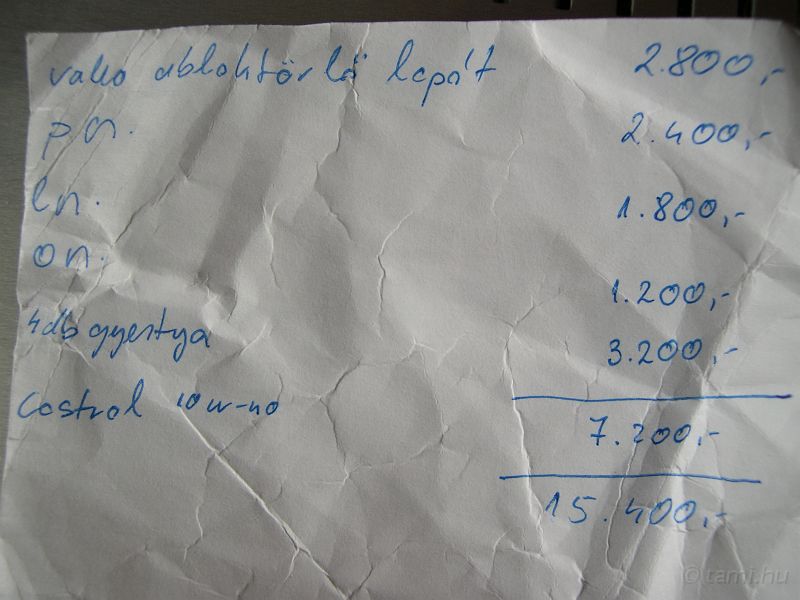 valeo ablaktörlő lapát 2.800,-
p.n. 2.400,-
ln. 1.800,-
on. 1.200,-
4db gyertya 3.200,-
Castrol 10w-40 7.200,-
15.400,-
© tami.hu